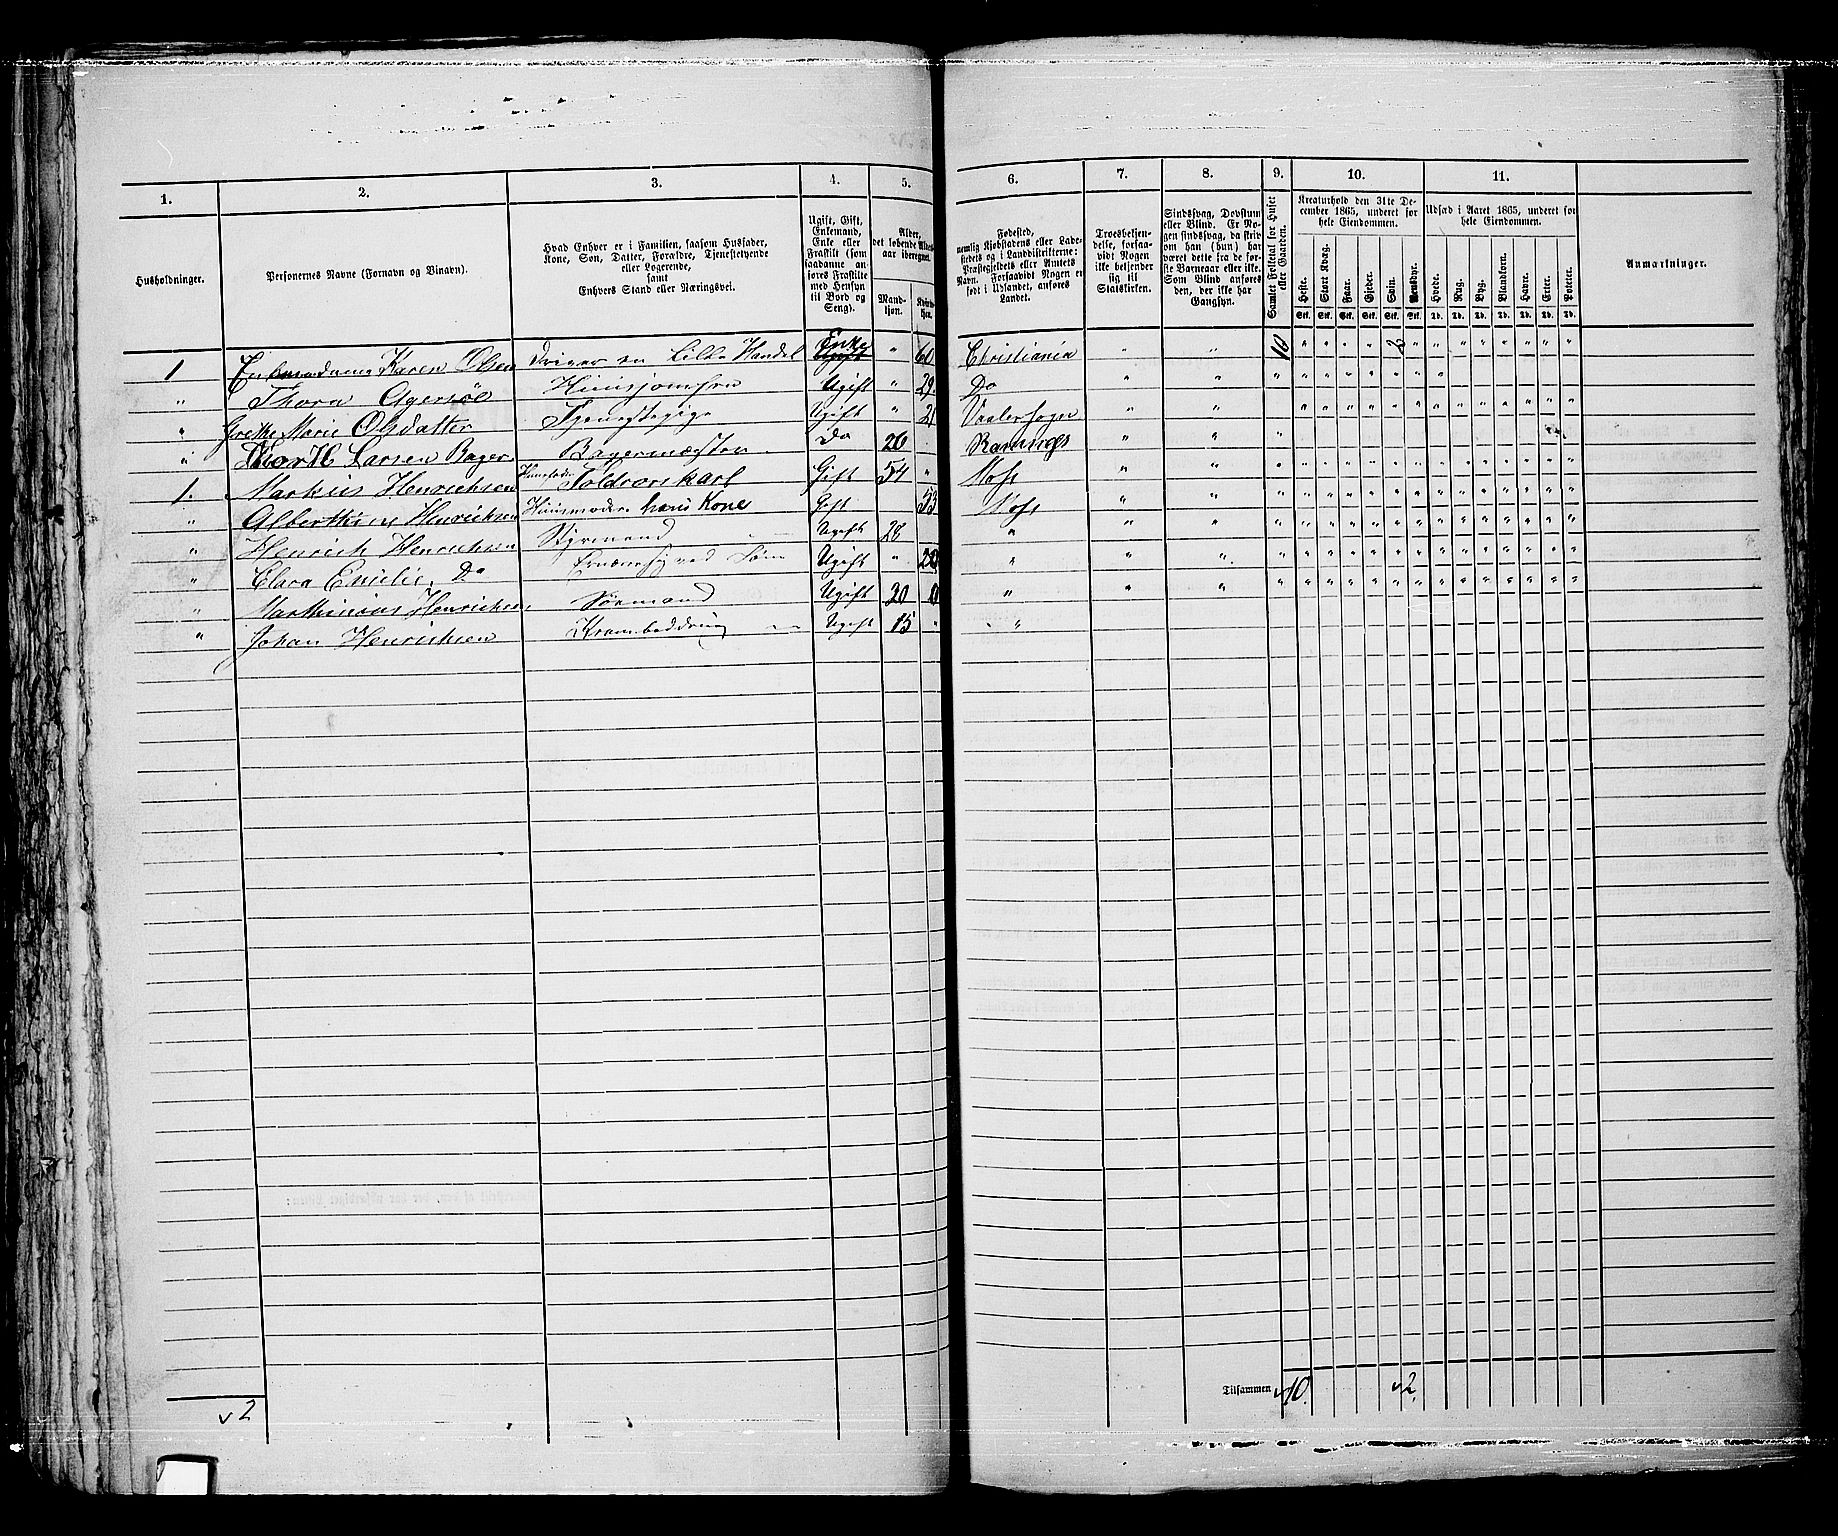 1. 2. 3. 4. 5. 6. 7. 8. 9. 10. 11.
Husholdninger.
Personernes Navne (Fornavn og Binavn).
Hvad Enhver er i Familien, saasom Husfader,
Kone, Søn, Datter, Forældre, Tjenestetyende
eller Logerende,
samt
Enhvers Stand eller Næringsvei.
Ugift, Gift,
Enkemand,
Enke eller
Fraskilt (som
saadanne an-
føres Fraskilte
med Hensyn
til Bord og
Seng).
Alder,
det løbende Alders-
aar iberegnet.
Mand-
kjøn.
Kvinde-
kjøn.
Fødested,
nemlig Kjøbstadens eller Lade-
stedets og i Landdistrikterne:
Præstegjeldets eller Amtets
Navn. Forsaavidt Nogen er
født i Udlandet, anføres
Landet.
Troesbekjen-
delse, forsaa-
vidt Nogen
ikke bekjender
sig til
Statskirken.
Sindssvag, Døvstum
eller Blind. Er No-
gen sindssvag, da skriv
om han (hun) har
været dette fra de før-
ste Barneaar eller ikke.
Som Blind anføres
den, der ikke har
Gangsyn.
Samlet Folketal for Huset
eller Gaarden.
Kreaturhold den 31te De-
cember 1865, underet for
hele Eiendommen.
Heste. Stort Kvæg. Faar. Gjeder. Svin. Rensdyr.
Stk. Stk. Stk. Stk. Stk. Stk.
Udsæd i Aaret 1865, underet for
hele Eiendommen.
Hvede. Rug. Byg. Blandkorn. Havre. Erter. Poteter.
Td. Td. Td. Td. Td. Td. Td.
Anmærkninger.
1 Karen Olsen Driver en Lille Handel Enke Ugift " 60 Christiania " " 10 " " " " 2 "
" Thora Agersöe Huusjomfru Ugift " 29 Do " "
" Grethe Marie Olsdatter Tjenestepige Ugift " 21 Vaaler Sogn " "
" Larsen Bager Bagermester Do 26 " "
1. Markus Henrichsen Toldroerskarl Gift 54 " Moss " "
" Albertine Henrichsen Huusmoder hans Kone Gift 53 Moss " "
" Henrich Henrichsen Styrmand Ugift 28 " " "
" Clara Emilie Do Ernærer sig ved Søm Ugift " 20 " " "
" Marthinius Henrichsen Sørmand Ugift 20 " " "
" Johan Henrichsen Krambod Ugift 15 " "
v 2
Tilsammen v 10. v 2.